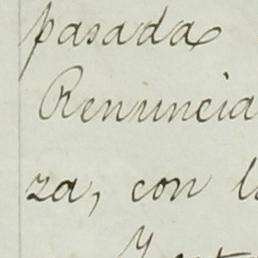 pasada
Renuncia
za, con l